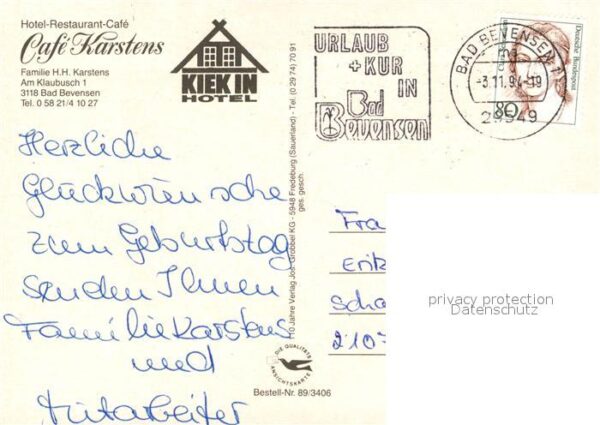 Hotel-Restaurant-Café
Café Karstens
Familie H.H. Karstens
Am Klaubusch 1
3118 Bad Bevensen
Tel. 0 58 21/4 10 27
KIEK IN
HOTEL
URLAUB
+ KUR
IN
Bad
Bevensen
BAD BEVENSEN 1
-3.11.94-19
29549
80
Deutsche Bundespost
Herzliche
Glückwünsche
zum Geburtstag
senden Ihnen
Familie Karstens
und
Mitarbeiter
110 Jahre Verlag Jos. Grobbel KG - 5948 Fredeburg (Sauerland) - Tel. (0 29 74) 70 91
ges. gesch.
DIE QUALITÄTS
ANSICHTSKARTE
Bestell-Nr. 89/3406
Fra
Erik
Scha
210
privacy protection
Datenschutz